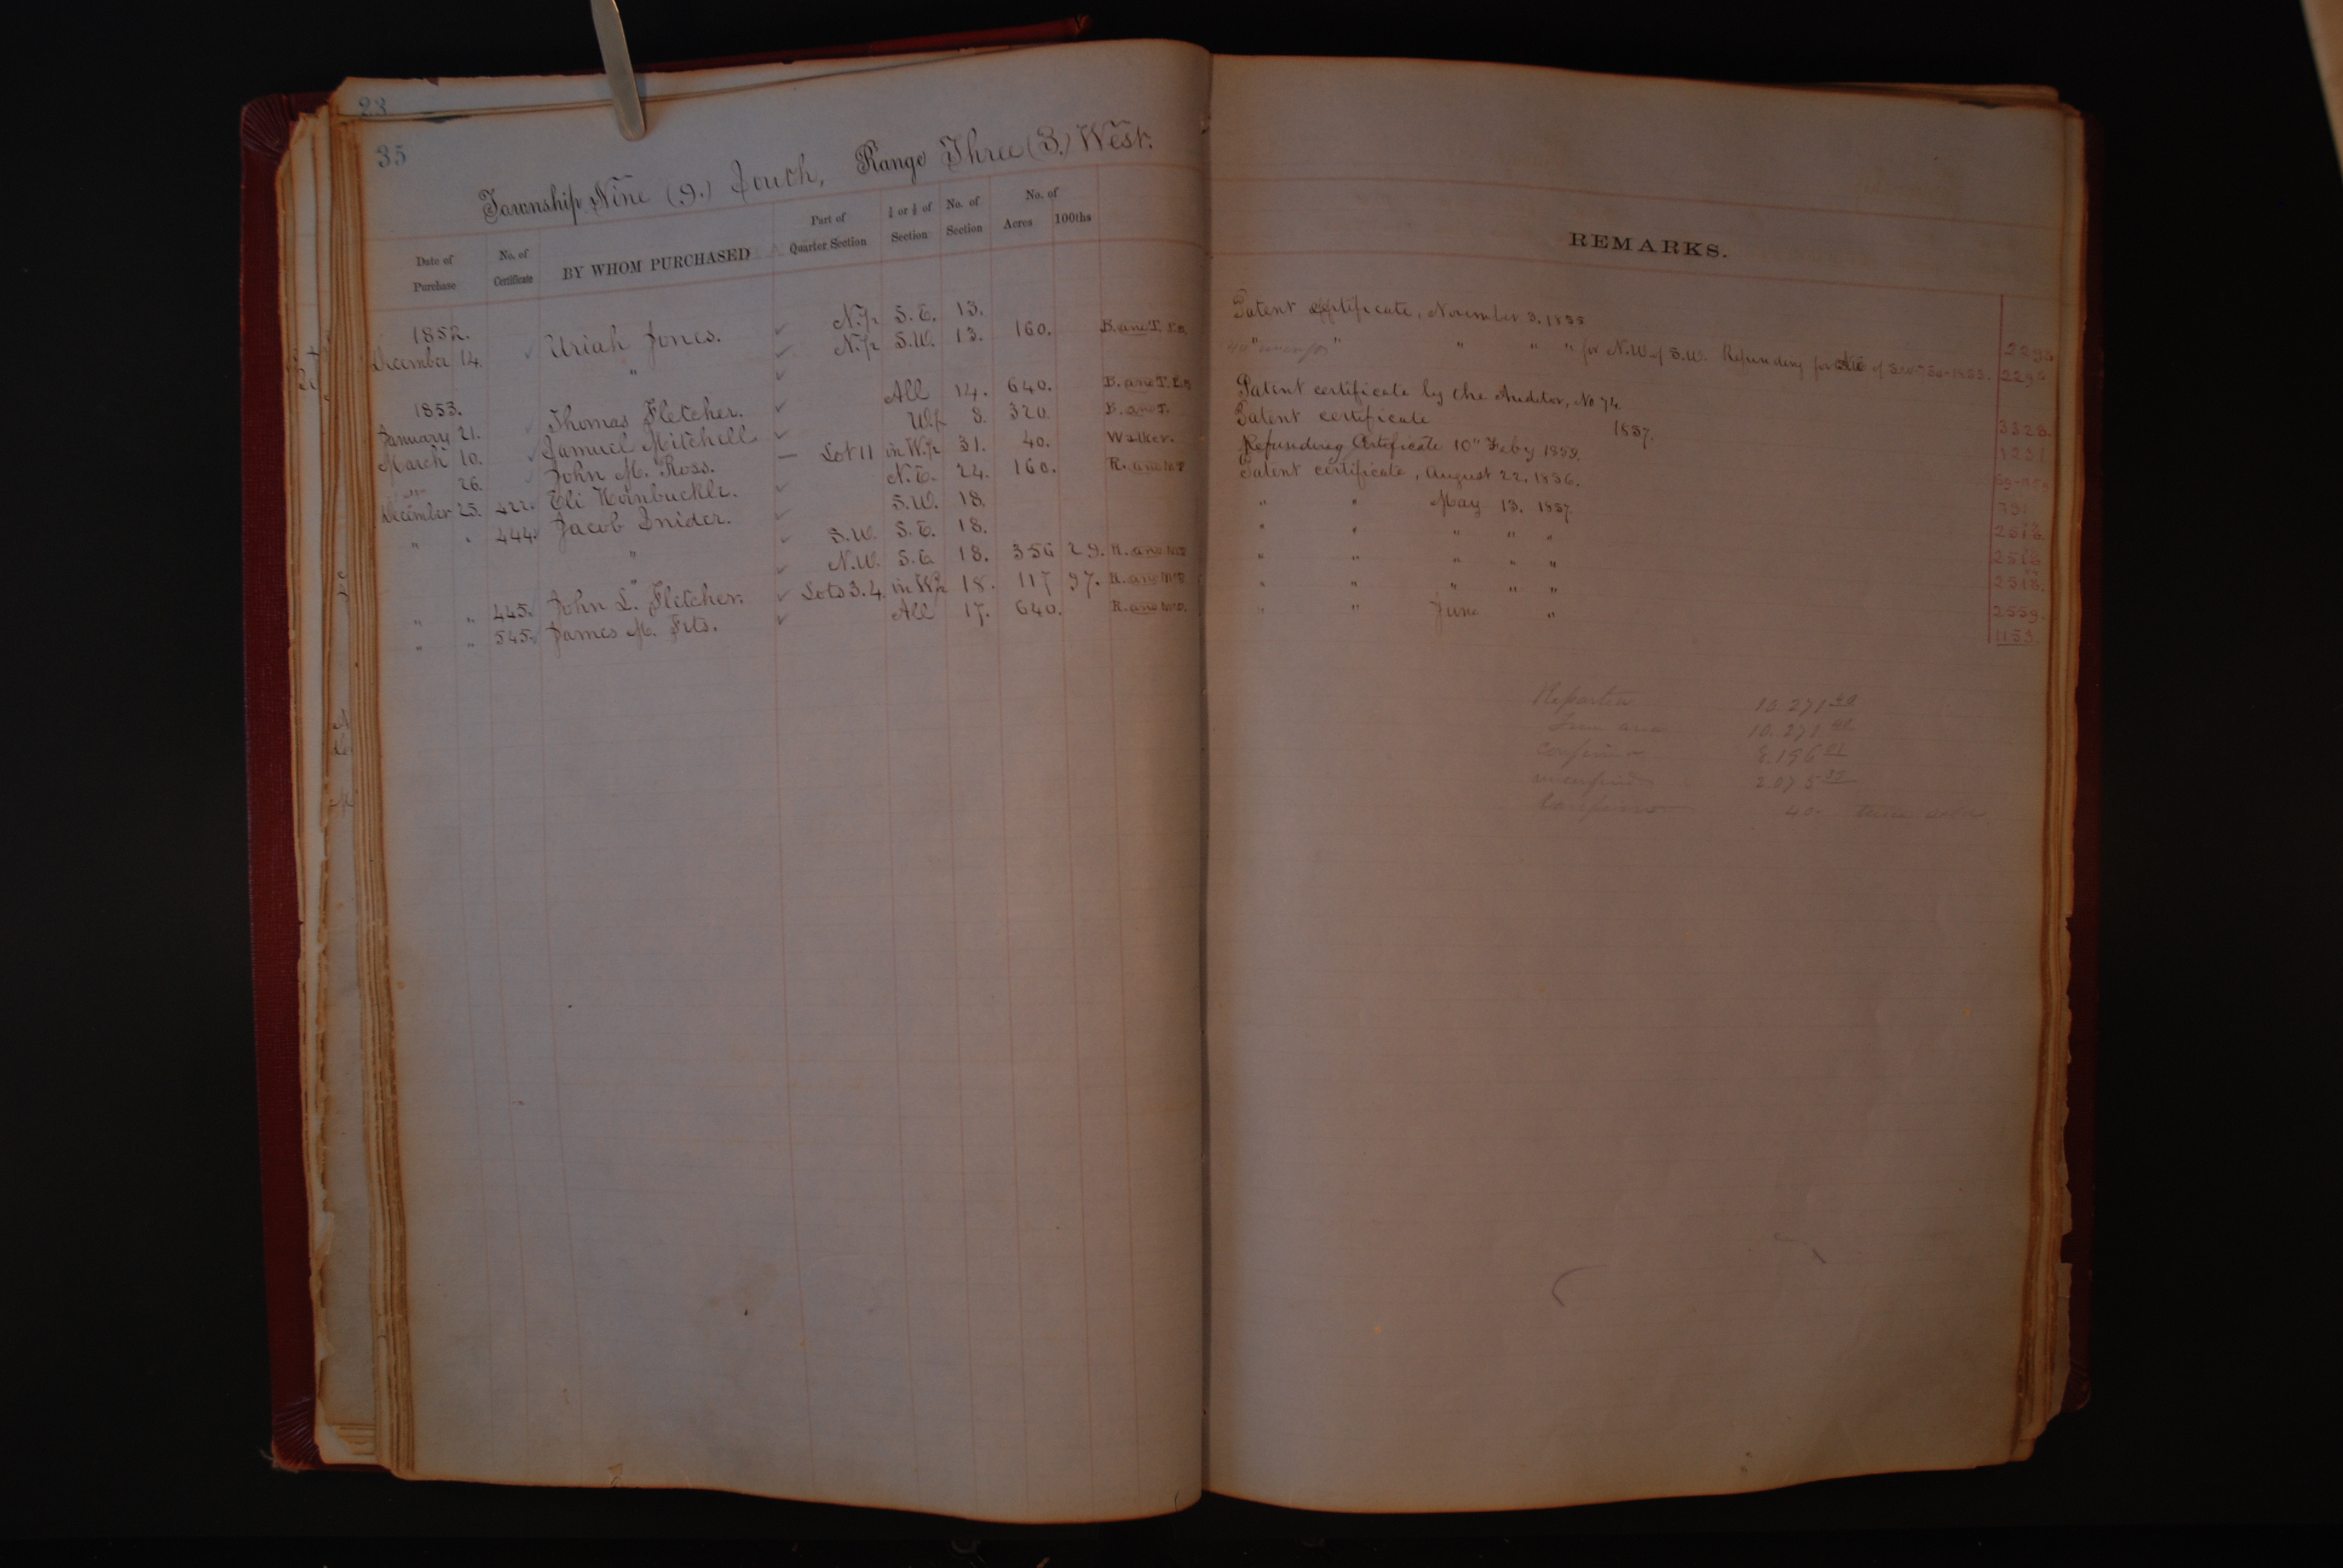 23
35
Township Nine (9.) South, Range Three (3.) West.
Date of Purchase No. of Certificate BY WHOM PURCHASED Part of Quarter Section ¼ or ½ of Section No. of Section No. of Acres 100ths
REMARKS.
1852.
December 14. Uriah Jones. N.½ S.E. 13.
" N.½ S.W. 13. 160. B. and T. Ex.
1853.
January 21. Thomas Fletcher. All 14. 640. B. and T. Ex.
March 10. Samuel Mitchell W.½ 8. 320. B. and T.
" 26. John M. Ross. Lot 11 in W.½ 31. 40. Walker.
December 25. 422. Eli Hornbuckle. N.E. 24. 160. R. and
" " 444. Jacob Snider. S.W. 18.
" S.W. S.E. 18.
" N.W. S.E. 18. 356 29. R. and
" " 445. John L. Fletcher. Lots 3.4. in W½ 18. 117 97. R. and
" " 545. James M. Fits. All 17. 640. R. and
Patent certificate, November 3, 1855
" " " " for N.W. of S.W. Refunding for
Patent certificate by the Auditor, No 74
Patent certificate 1857.
Refunding Certificate 10" Feby 1859.
Patent certificate, August 22, 1856.
" " May 13. 1857
" " " " "
" " " " "
" " " " "
" " June "
2295
2296
3328.
1231
751
2518.
2518
2518.
2559.
1153.
10.271 40
10.271 40
2.075
40.